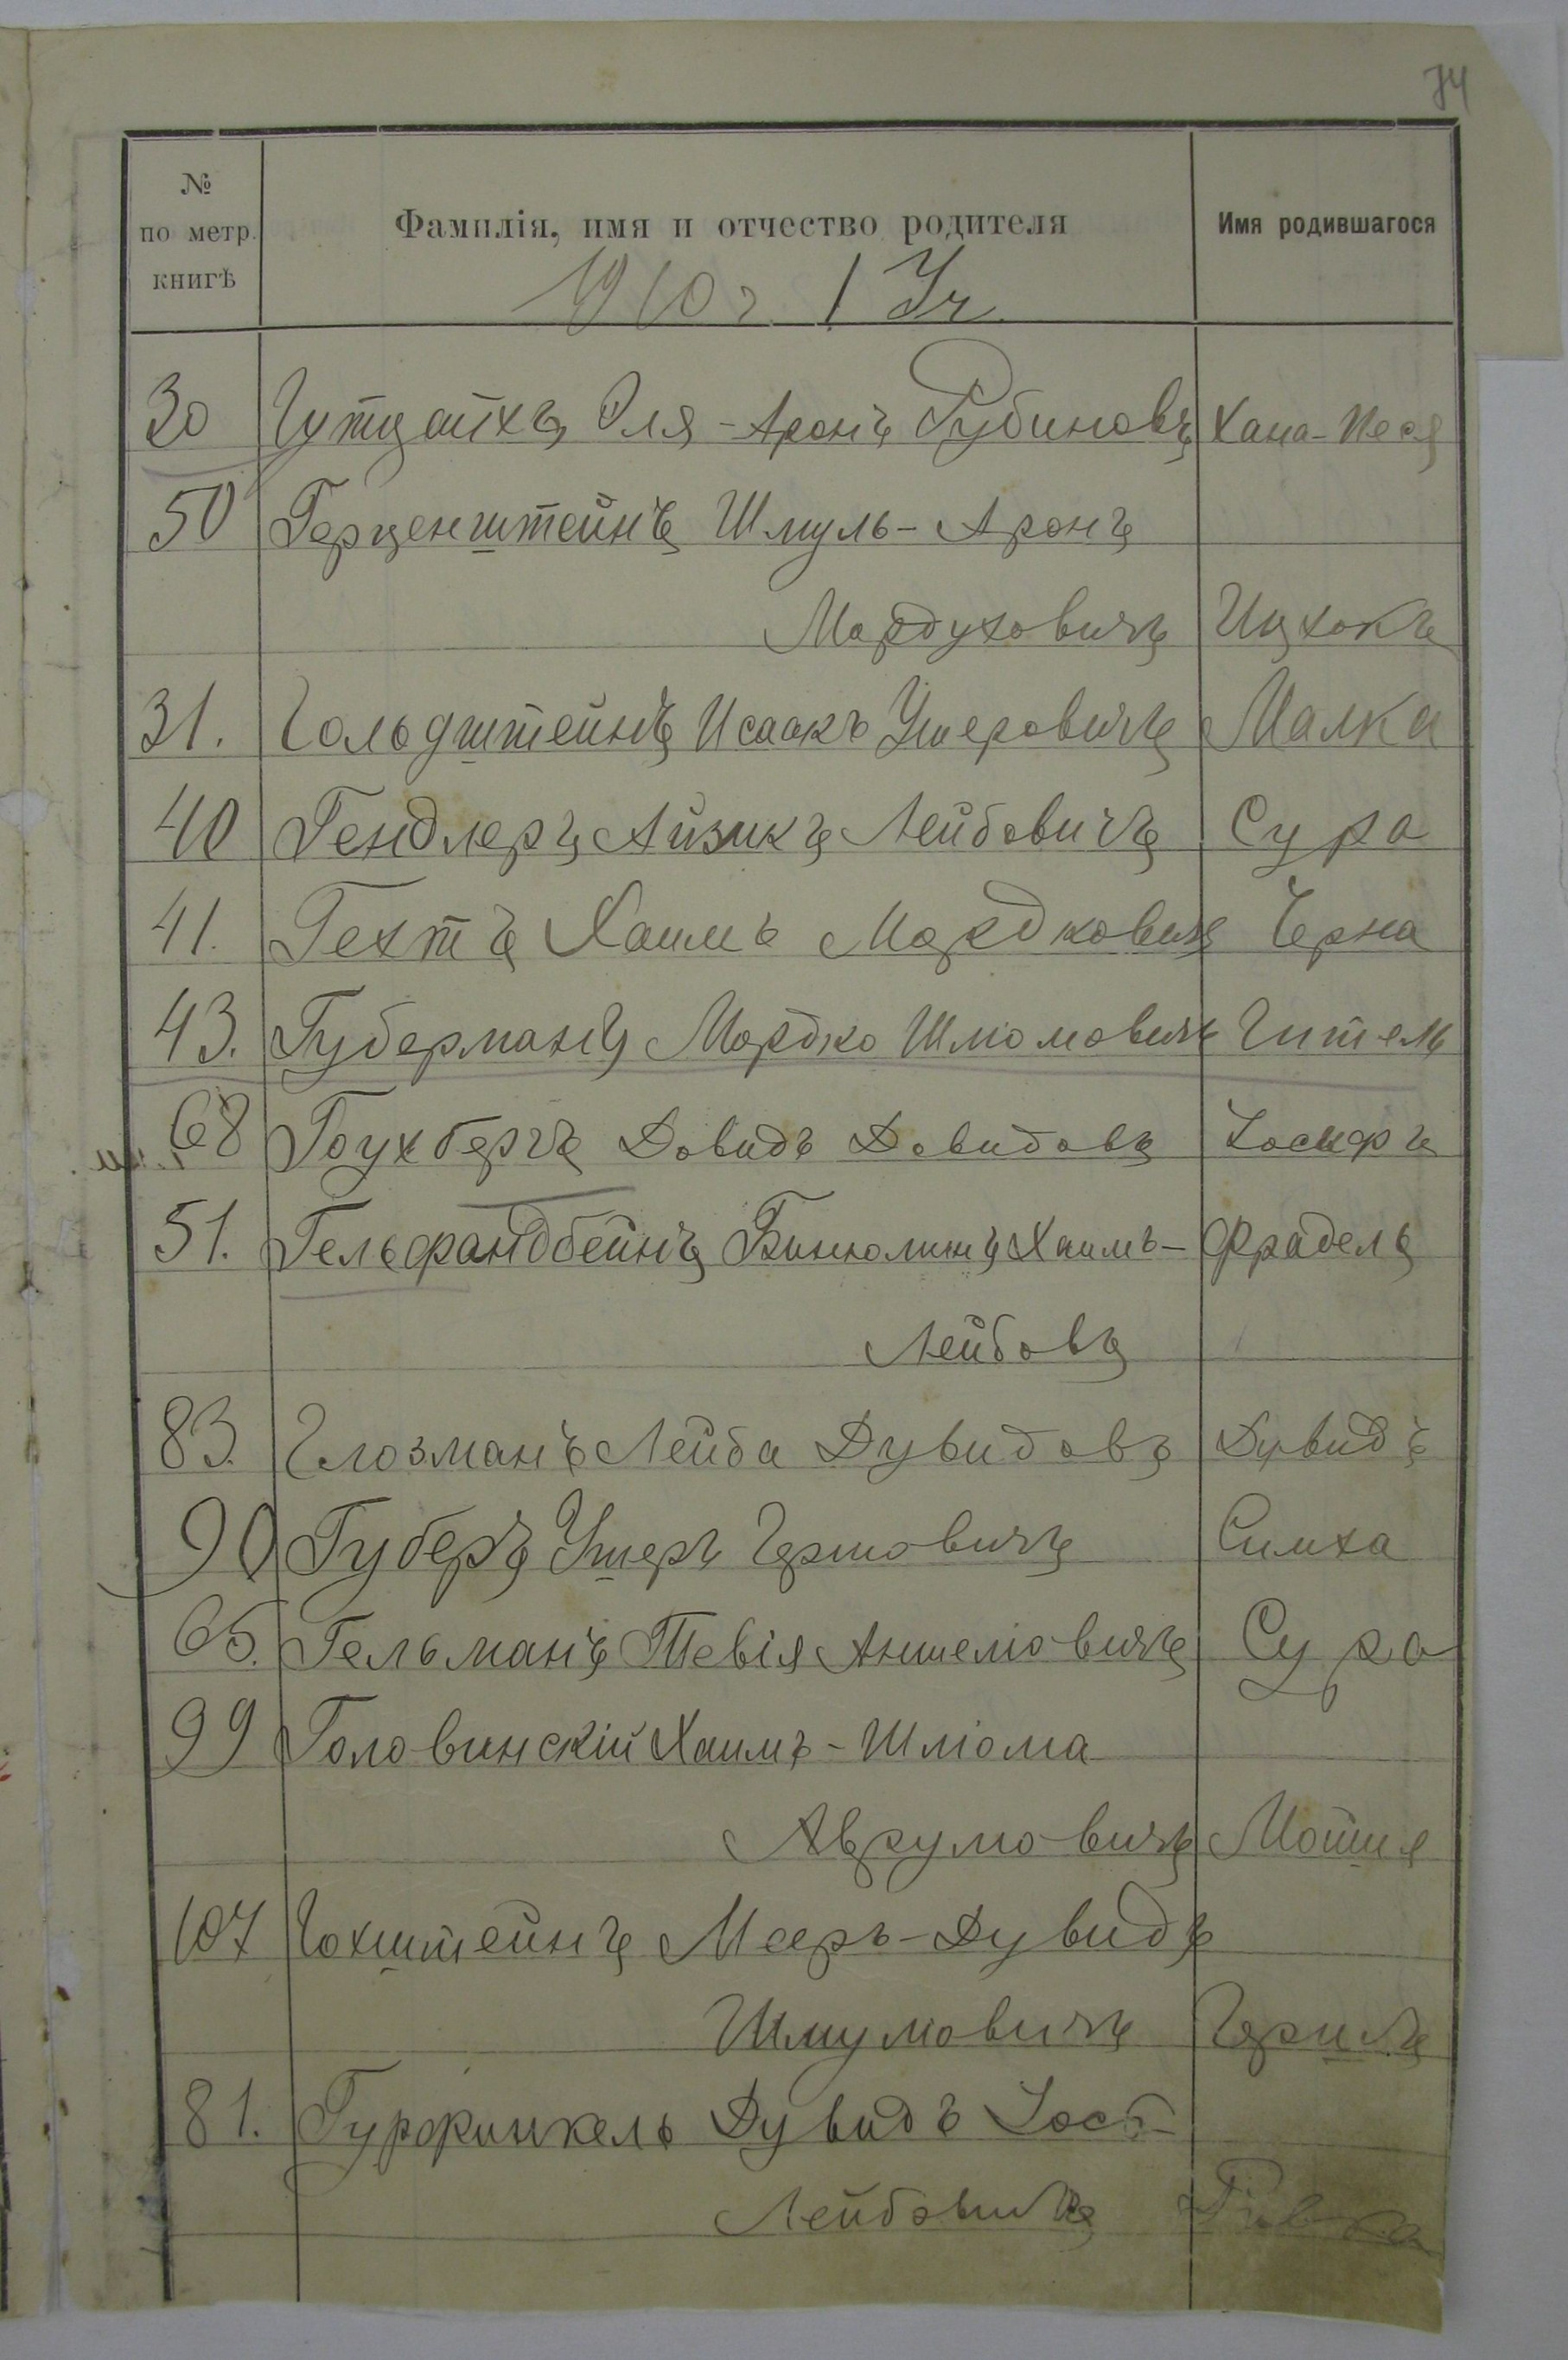 74
№ по метр. книгѣ Фамилія, имя и отчество родителя Имя родившагося
1910 г. 1 Уч.
30 Гутцайтъ Эля-Аронъ Рубиновъ Хана-Песя
50 Герценштейнъ Шмуль-Аронъ
Мордуховичъ Ицхокъ
31. Гольдштейнъ Исаакъ Ушеровичъ Малка
40 Гендлеръ Айзикъ Лейбовичъ Сура
41. Гехтъ Хаимъ Мордковичъ Черна
43. Губерманъ Мордко Шліомовичъ Гитель
68 Гоухбергъ Довидъ Довидовъ Іосифъ
51. Гельфандбейнъ Биніоминъ Хаимъ- Фрадель
Лейбовъ
83. Глозманъ Лейба Дувидовъ Дувидъ
90 Губеръ Ушеръ Гершовичъ Симха
65. Гельманъ Тевія Аншеліовичъ Сура
99 Головинскій Хаимъ-Шліома
Аврумовичъ Мотия
107 Гохштейнъ Мееръ-Дувидъ
Шмуліовичъ Гершъ
81. Гурфинкель Дувидъ Іось-
Лейбовичъ Ривка